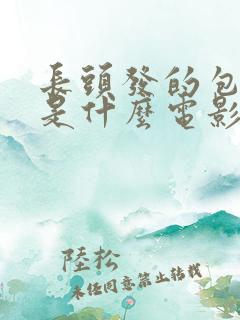 長頭發的包
是什麼電影
陸松
未經同意禁止轉載